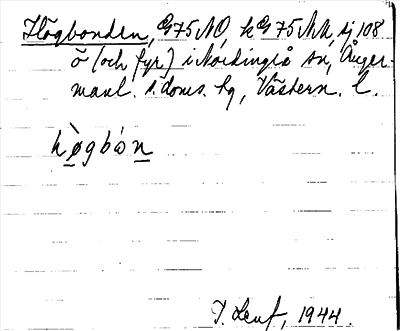 Högbonden, G75NO, kG75NN, sj 108
ö (och fyr) i Nordingrå sn, Ånger-
manl. s. doms. hg, Västern. l.
hø̀gbón
T. Leuf, 1944.